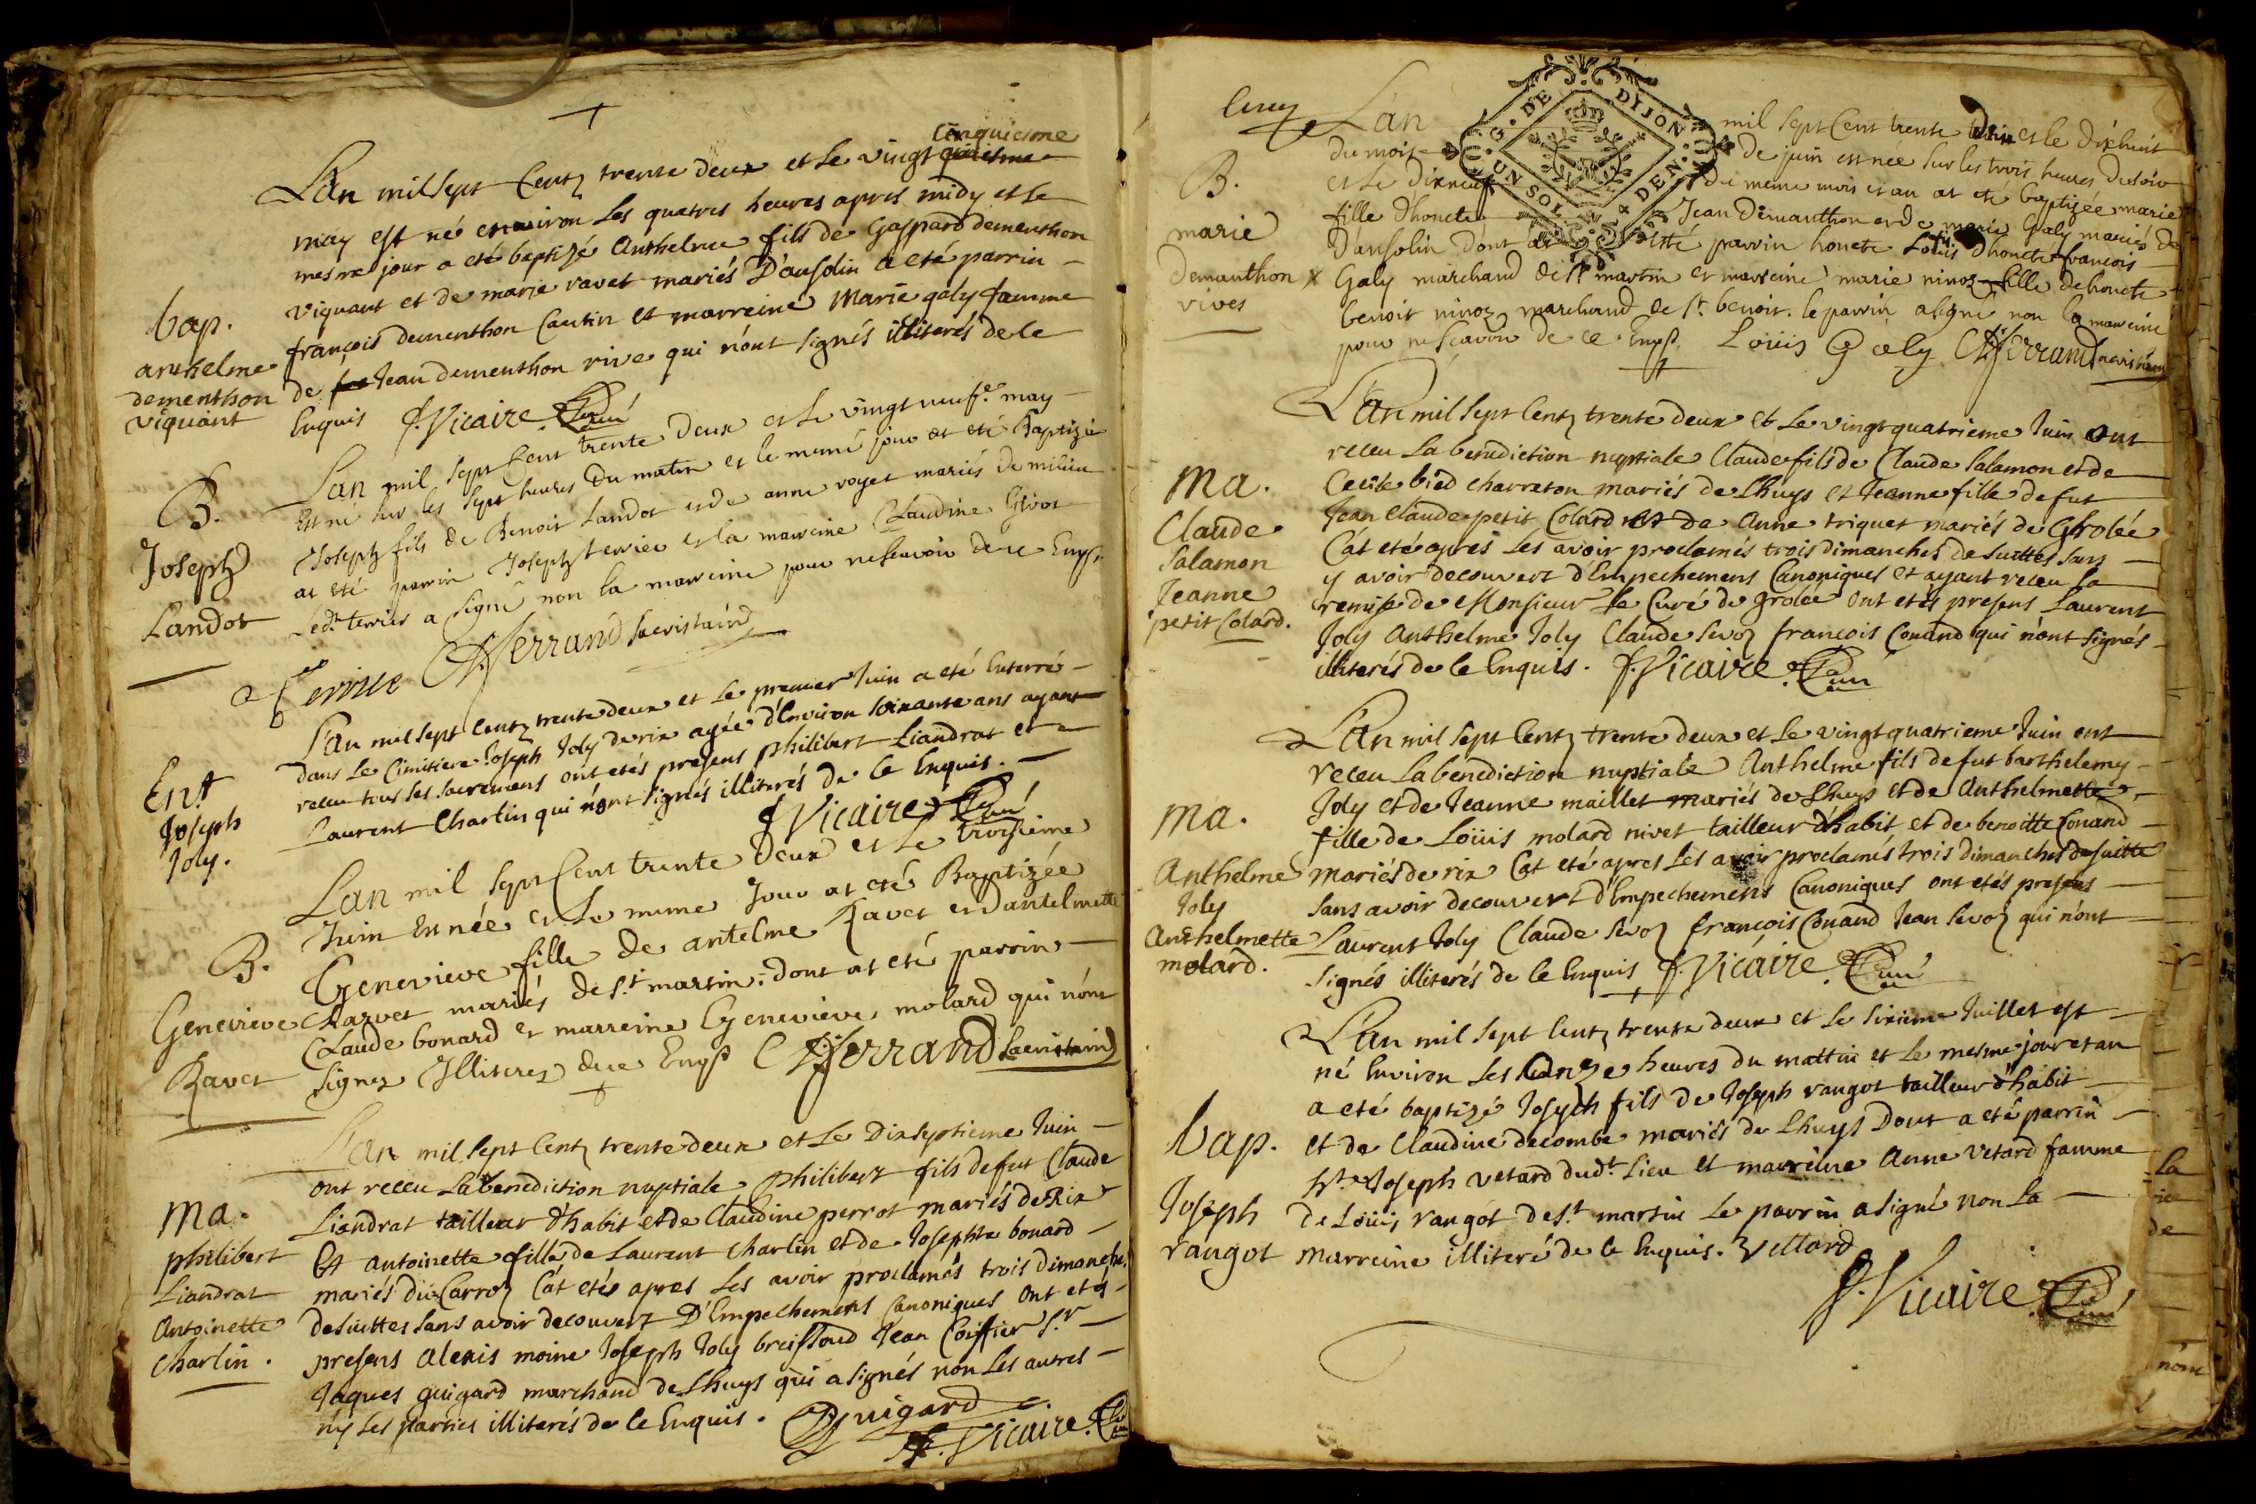 Lan mil sept Centz trente deux et le vingt cinquiesme
may est né environ les quatres heures apres midy et le
mesme jour a eté baptizé Anthelme fils de Gaspard dementhon
viquant et de marie ravet mariés D'ansolin a eté parrin
françois dementhon Cantin et marreine Marie galy famme
de Jean dementhon vive qui n'ont signés illiterés de le
Enquis J. Vicaire Curé
bap.
anthelme
dementhon
viquant
Lan mil sept Cent trente deux et le vingt neufe. may
Est né sur les sept heures du matin et le meme jour at eté Baptizé
Joseph fils de Benoit Landot et de anne royet mariés de milieu
at eté parrin Joseph terrier et la marreine Claudine Givot
led.t terrier a signé non la marreine pour ne scavoir de ce Enqs
B.
Joseph
Landot
Terrier Ferrand sacristaind
L'an mil sept Centz trente deux et le premier Juin a eté Enterré
dans le Cimitiere Joseph Joly de rix agée d'Environ soixante ans ayant
receu tous ses sacremens ont etés presens philibert Liandrat et
Laurent Charlin qui n'ont signés illiterés de le Enquis.
J. Vicaire Curé
Ent
Joseph
Joly.
Lan mil sept Cent trente Deux et le troisieme
Juin En née et le meme Jour at eté Baptizée
Genevieve fille de antelme Ravet et d'antelmette
Charvet mariés de s.t martin: dont at eté parrin
Claude bonard et marreine Genevieve molard qui n'ont
signez Illiterez de ce Enqs Ferrand sacristaind
B.
Genevieve
Ravet
L'an mil sept Centz trente deux et le Dixseptieme Juin
ont receu la benediction nuptiale philibert fils de fut Claude
Liandrat tailleur d'habit et de Claudine perrot mariés de Rix
Et Antoinette fille de Laurent Charlin et de Josephte bonard
mariés du Carroz C'at etés apres les avoir proclamés trois dimanches
de suittes sans avoir decouvert D'Empechemens Canoniques Ont etés
presens Alexis moine Joseph Joly breissoud Jean Coiffier S.r
Jaques guigard marchand de Lhuys qui a signés non les autres
ny les parties illiterés de le Enquis. Guigard
J. Vicaire Curé
Ma.
philibert
Liandrat
Antoinette
Charlin.
Lan mil sept Cent trente deux et le dixhuit
du mois de juin est née sur les trois heures du soir
et le dixneuf du meme mois et an at eté baptizée marie
fille d'honete Jean Demanthon et de marie Galy mariés de
Dansolin dont at etté parrin honete Louis fils d'honete françois
Galy marchand de s.t martin et marreine marie ninoz fille de honete
benoit ninoz marchand de s.t benoit. le parrin a signé non la marreine
pour ne scavoir de ce Enqs. Loüis Galy Ferrand sacristain
G. DE DIJON
UN SOL 4 DEN.
B.
marie
Demanthon
vives
L'an mil sept Centz trente deux et le vingt quatrieme Juin ont
receu la benediction nuptiale Claude fils de Claude Salamon et de
Cecile bied charreton mariés de Lhuys et Jeanne fille de fut
Jean Claude petit Colard et de Anne triquet mariés de Grolée
C'at eté apres les avoir proclamés trois dimanches de suittes sans
y avoir decouvert d'Empechemens Canoniques et ayant receu la
remise de Monsieur le Curé de grolée ont etés presens Laurent
Joly Anthelme Joly Claude Sevoz françois Conand qui n'ont signés
illiterés de le Enquis. J. Vicaire Curé
Ma.
Claude
Salamon
Jeanne
petit Colard.
L'an mil sept Centz trente deux et le vingt quatrieme Juin ont
receu la benediction nuptiale Anthelme fils de fut barthelemy
Joly et de Jeanne maillet mariés de Lhuys et de Anthelmette
fille de Loüis molard nivet tailleur d'habit et de benoitte Conand
mariés de rix C'at eté apres les avoir proclamés trois dimanches de suitte
sans avoir decouvert d'Empechemens Canoniques ont etés presens
Laurent Joly Claude Sevoz françois Conand Jean Sevoz qui n'ont
signés illiterés de le Enquis J. Vicaire Curé
Ma.
Anthelme
Joly
Anthelmette
molard.
L'an mil sept Centz trente deux et le sixieme Juillet est
né Environ les Onze heures du mattin et le mesme jour et an
a eté baptizé Joseph fils de Joseph rangot tailleur d'habit
et de Claudine decombe mariés de Lhuys Dont a eté parrin
h.te Joseph vetard dud.t lieu et marreine Anne vetard famme
de Loüis rangot de s.t martin le parrin a signé non la
marreine illiteré de le Enquis. Vettard
J. Vicaire Curé
bap.
Joseph
rangot
la
de